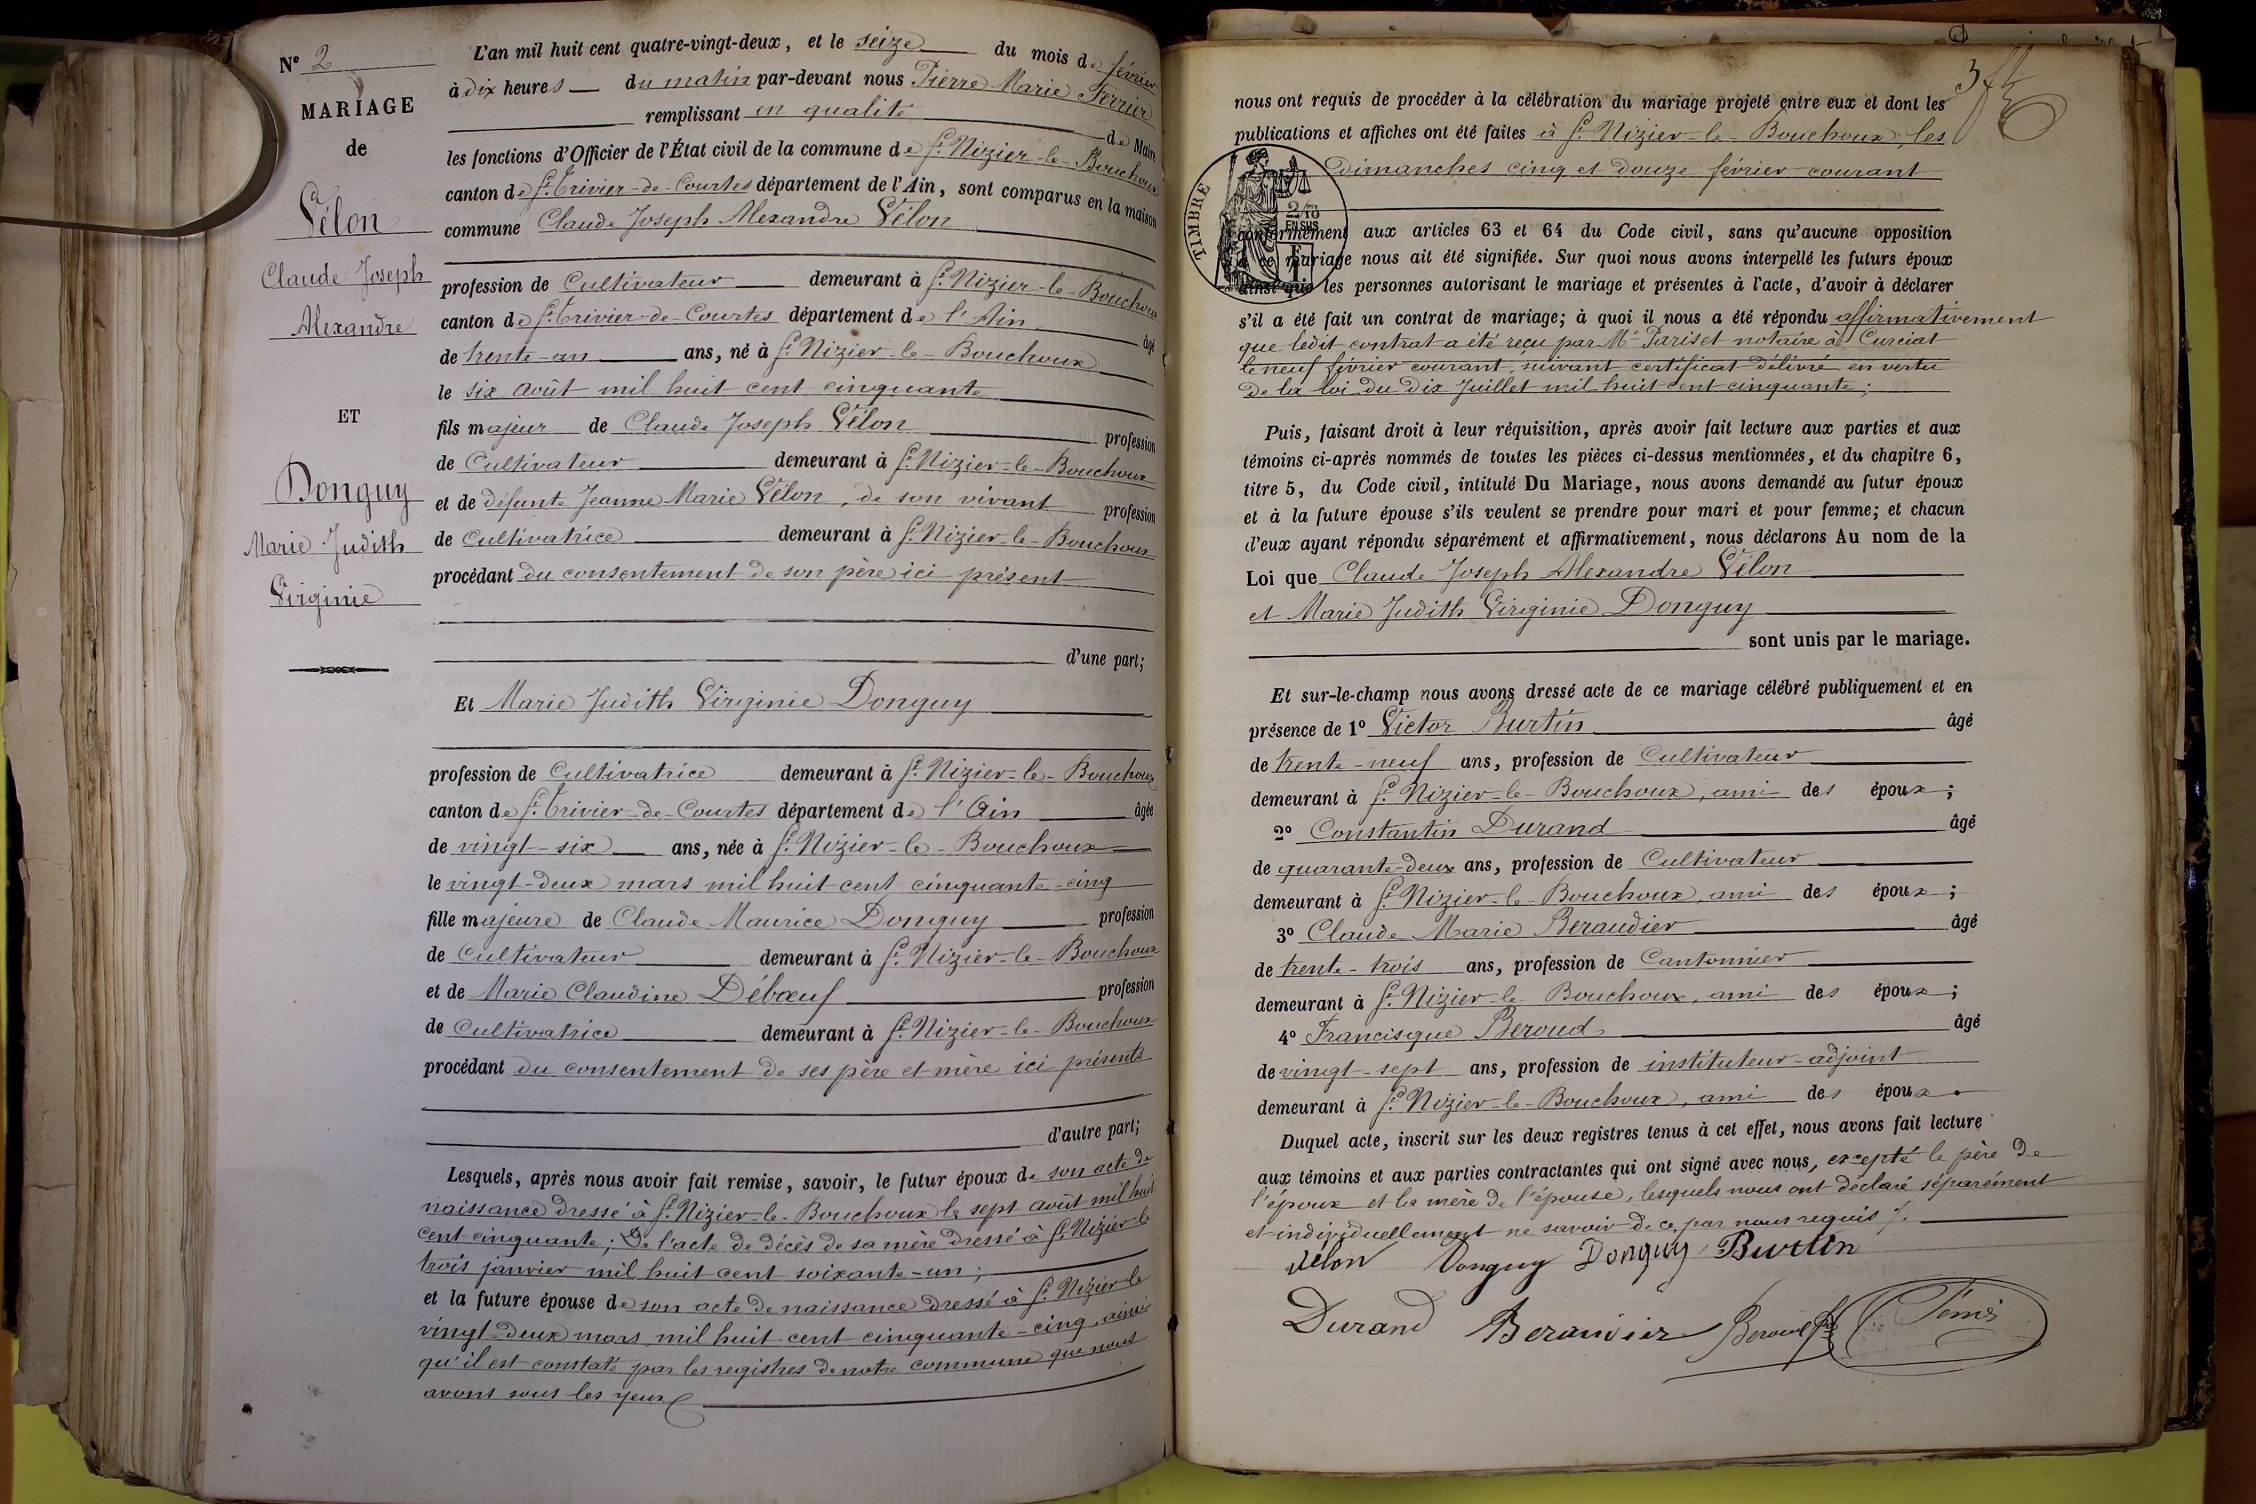 N° 2
MARIAGE
de
Vélon
Claude Joseph
Alexandre
ET
Donguy
Marie Judith
Virginie
L'an mil huit cent quatre-vingt-deux, et le seize du mois de février
à dix heures du matin par-devant nous Pierre Marie Ferrier
remplissant en qualité de Maire
les fonctions d'Officier de l'État civil de la commune de St Nizier-le-Bouchoux
canton de St Trivier-de-Courtes département de l'Ain, sont comparus en la maison
commune Claude Joseph Alexandre Vélon
profession de Cultivateur demeurant à St Nizier-le-Bouchoux
canton de St Trivier-de-Courtes département de l'Ain âgé
de trente-un ans, né à St Nizier-le-Bouchoux
le six août mil huit cent cinquante
fils majeur de Claude Joseph Vélon profession
de Cultivateur demeurant à St Nizier-le-Bouchoux
et de défunte Jeanne Marie Vélon, de son vivant profession
de Cultivatrice demeurant à St Nizier-le-Bouchoux
procédant du consentement de son père ici présent
d'une part;
Et Marie Judith Virginie Donguy
profession de Cultivatrice demeurant à St Nizier-le-Bouchoux
canton de St Trivier-de-Courtes département de l'Ain âgée
de vingt-six ans, née à St Nizier-le-Bouchoux
le vingt-deux mars mil huit cent cinquante-cinq
fille majeure de Claude Maurice Donguy profession
de Cultivateur demeurant à St Nizier-le-Bouchoux
et de Marie Claudine Débœuf profession
de Cultivatrice demeurant à St Nizier-le-Bouchoux
procédant du consentement de ses père et mère ici présents
d'autre part;
Lesquels, après nous avoir fait remise, savoir, le futur époux de son acte de
naissance dressé à St Nizier-le-Bouchoux le sept août mil huit
cent cinquante; De l'acte de décès de sa mère dressé à St Nizier le
trois janvier mil huit cent soixante-un;
et la future épouse de son acte de naissance dressé à St Nizier le
vingt-deux mars mil huit cent cinquante-cinq, ainsi
qu'il est constaté par les registres de notre commune que nous
avons sous les yeux
3
nous ont requis de procéder à la célébration du mariage projeté entre eux et dont les
publications et affiches ont été faites à St Nizier-le-Bouchoux, les
dimanches cinq et douze février courant
TIMBRE
2/10
EN SUS
conformément aux articles 63 et 64 du Code civil, sans qu'aucune opposition
à ce mariage nous ait été signifiée. Sur quoi nous avons interpellé les futurs époux
ainsi que les personnes autorisant le mariage et présentes à l'acte, d'avoir à déclarer
s'il a été fait un contrat de mariage; à quoi il nous a été répondu affirmativement
que ledit contrat a été reçu par Me Pariset notaire à Curciat
le neuf février courant, suivant certificat délivré en vertu
de la loi du dix Juillet mil huit cent cinquante;
Puis, faisant droit à leur réquisition, après avoir fait lecture aux parties et aux
témoins ci-après nommés de toutes les pièces ci-dessus mentionnées, et du chapitre 6,
titre 5, du Code civil, intitulé Du Mariage, nous avons demandé au futur époux
et à la future épouse s'ils veulent se prendre pour mari et pour femme; et chacun
d'eux ayant répondu séparément et affirmativement, nous déclarons Au nom de la
Loi que Claude Joseph Alexandre Vélon
et Marie Judith Virginie Donguy
sont unis par le mariage.
Et sur-le-champ nous avons dressé acte de ce mariage célébré publiquement et en
présence de 1° Victor Burtin âgé
de trente-neuf ans, profession de Cultivateur
demeurant à St Nizier-le-Bouchoux, ami des époux;
2° Constantin Durand âgé
de quarante-deux ans, profession de Cultivateur
demeurant à St Nizier-le-Bouchoux, ami des époux;
3° Claude Marie Beraudier âgé
de trente-trois ans, profession de Cantonnier
demeurant à St Nizier-le-Bouchoux, ami des époux;
4° Francisque Beroud âgé
de vingt-sept ans, profession de instituteur-adjoint
demeurant à St Nizier-le-Bouchoux, ami des époux.
Duquel acte, inscrit sur les deux registres tenus à cet effet, nous avons fait lecture
aux témoins et aux parties contractantes qui ont signé avec nous, excepté le père de
l'époux et la mère de l'épouse, lesquels nous ont déclaré séparément
et individuellement ne savoir de ce par nous requis
Vélon Donguy Donguy Burtin
Durand Beraudier Beroud